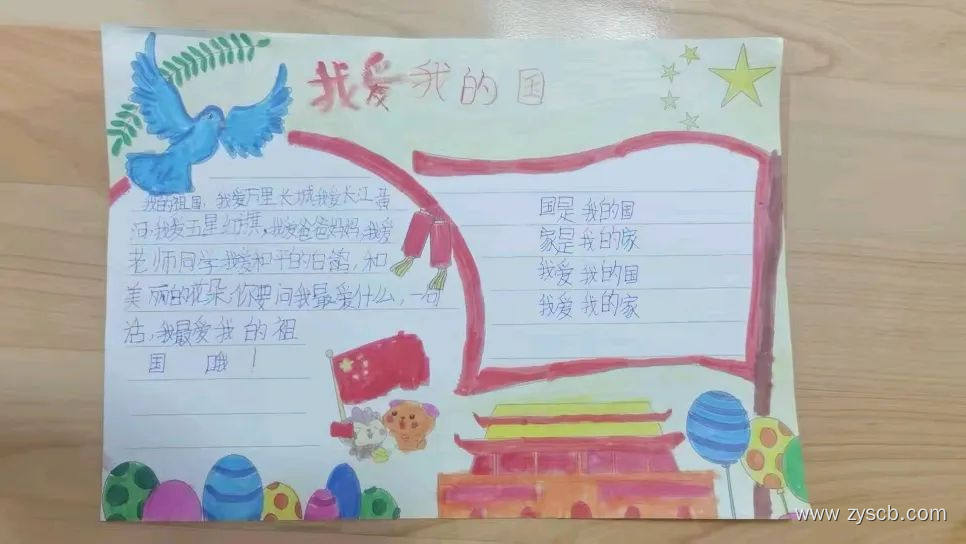 我爱我的国
我的祖国,我爱万里长城,我爱长江黄
河,我爱五星红旗,我爱爸爸妈妈,我爱
老师同学,我爱和平的白鸽,和
美丽的花朵,你要问我最爱什么,一句
话,我最爱我的祖
国 哦!
国是我的国
家是我的家
我爱我的国
我爱我的家
www.zyscb.com